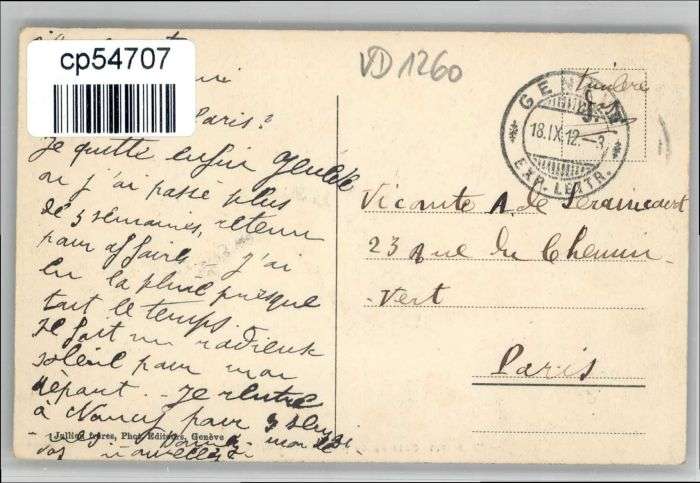 cp54707
VD 1260
Paris?
Je quitte enfin Genève
où j'ai passé plus
de 3 semaines, retenu
pour affaire. J'ai
eu la pluie presque
tout le temps.
Il fait un radieux
soleil pour mon
départ. Je rentre
à Nancy pour 3
Jullien frères, Phot. Editeurs, Genève
nouvelles
timbre
GENÈVE
18.IX.12.-3
EXP. LETTR.
Vicomte A. de Seraincourt
23 Rue du Chemin-
-Vert
Paris